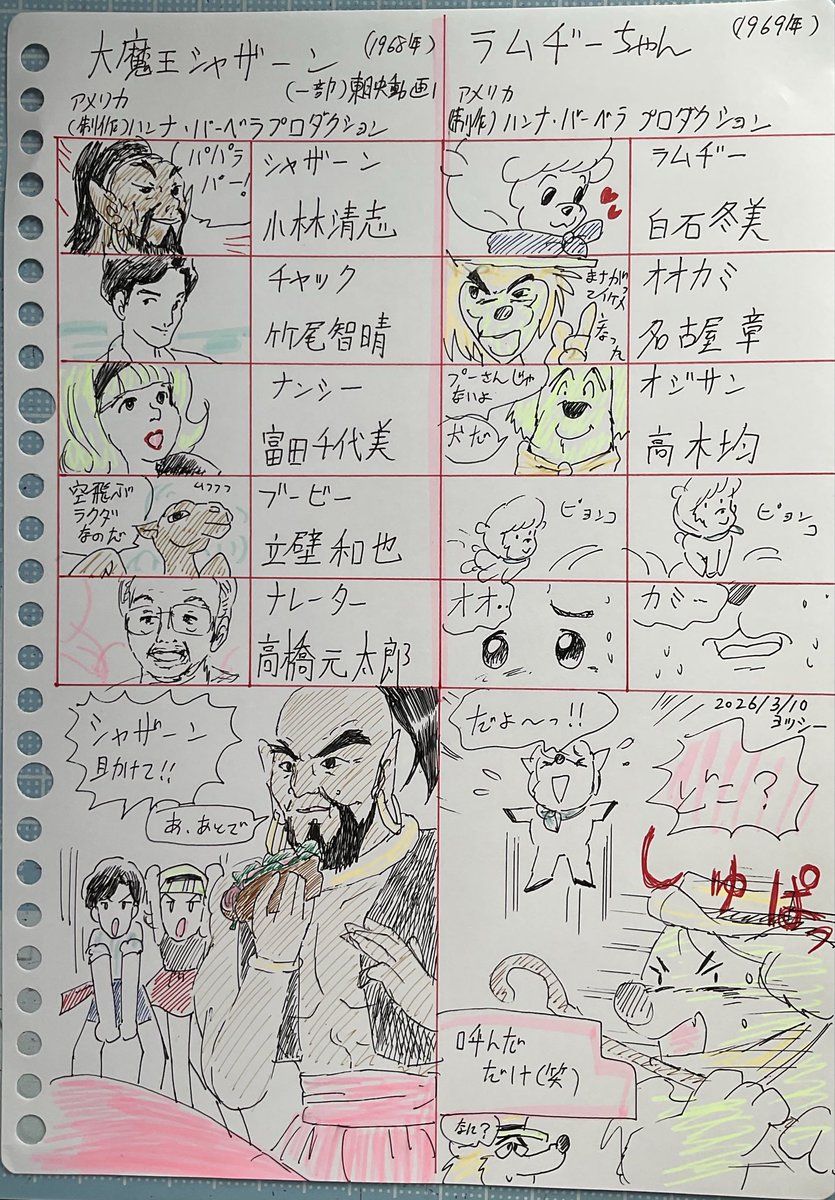 大魔王シャザーン (1968年)
(一部)東映動画
アメリカ
(制作)ハンナ・バーベラプロダクション
パパラ
パー!
シャザーン
小林清志
チャック
竹尾智晴
ナンシー
富田千代美
空飛ぶ
ラクダ
なのだ
ムフフフ
ブービー
立壁和也
ナレーター
高橋元太郎
シャザーン
助けて!!
あ、あとで
ラムヂーちゃん
(1969年)
アメリカ
(制作)ハンナ・バーベラ プロダクション
ラムヂー
白石冬美
オオカミ
名古屋章
プーさんじゃ
ないよ
犬だ
オジサン
高木均
ピョンコ
ピョンコ
オオ‥
カミー
2026/3/10
ヨッシー
だよ〜っ!!
どこ?
しゅぱっ
呼んだ
だけ(笑)
なに?